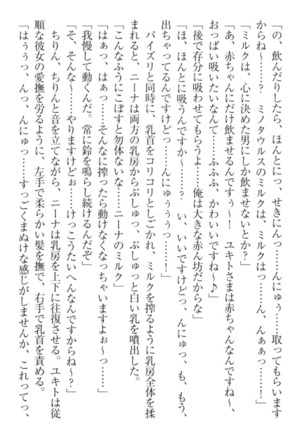 「の、飲んだりしたら、ほんとにっ、せきにんっ……んにゅぅ…取ってもらいます
からね～……？　ミノタウルスのミルクは、ミルクはっ……ん、んぁぁっ…！」
「ミルクは、心に決めた男にしか飲ませないとか？」
「あ、赤ちゃんにだけ飲ませるんですぅ～！　ユキトさまは赤ちゃんなんですね～、
おっぱい吸いたいなんて……ふふふ、かわいいですね～♪」
「後で存分に吸わせてもらうよ……俺は大きな赤ん坊だからな」
「ほ、ほんとに吸うんですか～……？　い、いいですけどっ…んにゅっ、も、もう、
出ちゃってるんですけどっ……んにゅぅぅぅっ……！」
　パイズリと同時に、乳首をコリコリとしごかれ、ミルクを搾るように乳房全体を揉
まれると、ニーナは両方の乳房からぷしゅっ、ぷしゅっと白い乳を噴出した。
「こんなふうにこぼすと勿体ないな……ニーナのミルク」
「はぁっ、はぁっ……そんなに搾ったら動けなくなっちゃいますよぉ～っ……」
「我慢して動くんだ。常に鈴を鳴らし続けるんだぞ」
「そ、そんな～……やりますけどぉ……けっこうたいへんなんですからね～？」
　ちりん、ちりんと音を立てながら、ニーナは乳房を上下に往復させる。ユキトは従
順な彼女の愛撫を労るように、左手で柔らかい髪を撫で、右手で乳首を責める。
「はぅぅっ、んっ、んにゅっ……すっごくまぬけな感じがしませんか、これってっ、